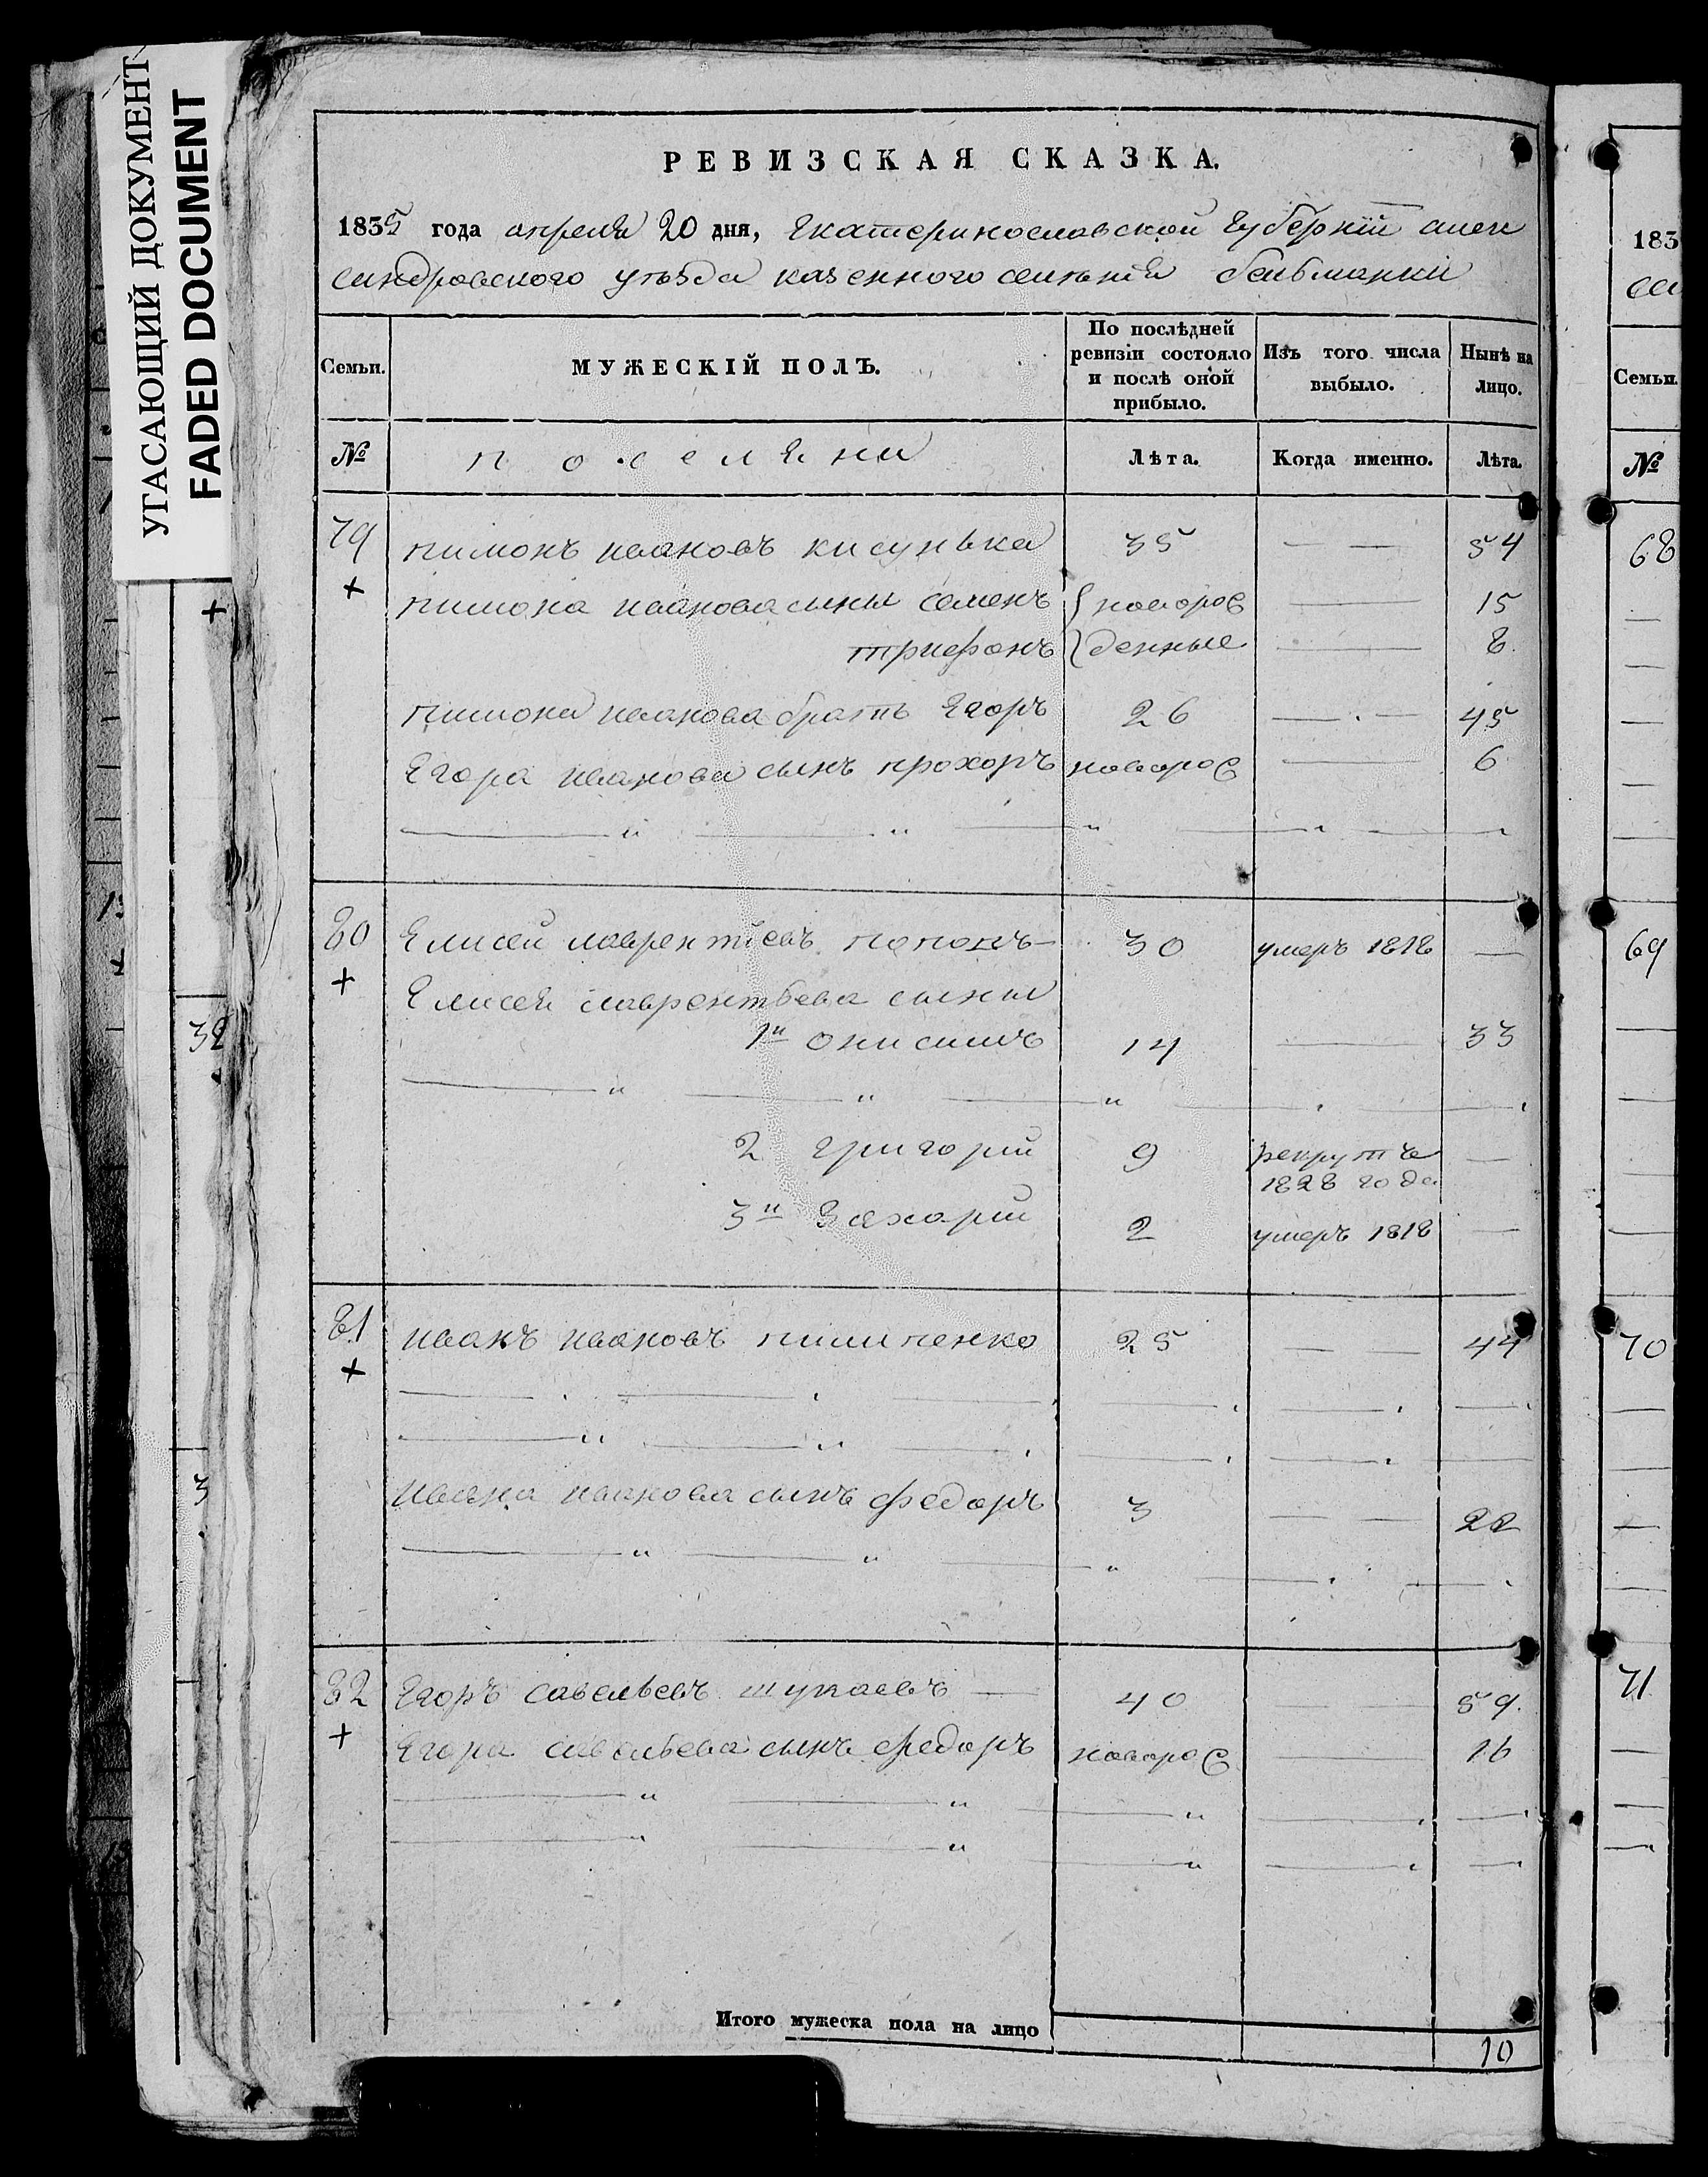 УГАСАЮЩИЙ ДОКУМЕНТ
FADED DOCUMENT
РЕВИЗСКАЯ СКАЗКА.
1835 года апреля 20 дня, Екатеринославской губернїи алек
сандровского уѣзда казенного селенїя бельманки
Семьи. МУЖЕСКІЙ ПОЛЪ. По послѣдней ревизіи состояло и послѣ оной прибыло. Изъ того числа выбыло. Нынѣ на лицо.
№ поселяни Лѣта. Когда именно. Лѣта.
79 пимонъ ивановъ кисунька 35 — — 54
+ пимона иванова сыны семенъ новорож — 15
трифонъ денные — 8.
пимона иванова братъ Егоръ 26 — — 45
Егора иванова сынъ прохоръ новорож — 6
80 Елисей лаврентїевъ попонъ — 30 умеръ 1818 —
+ Елисея лаврентьева сыны
1й онисимъ 14 — 33
2 григорий 9 рекрутъ —
1828 года
3й Захарий 2 умеръ 1818 —
81 иванъ ивановъ пилипенко 25 — — 44
+
ивана иванова сынъ федоръ 3 — — 22
82 Егоръ савельевъ шукаевъ — 40 — 59.
+ Егора савельева сынъ федоръ новорож — 16
Итого мужеска пола на лицо 10
32
3
+
183
Семьи.
№
68
69
70
71